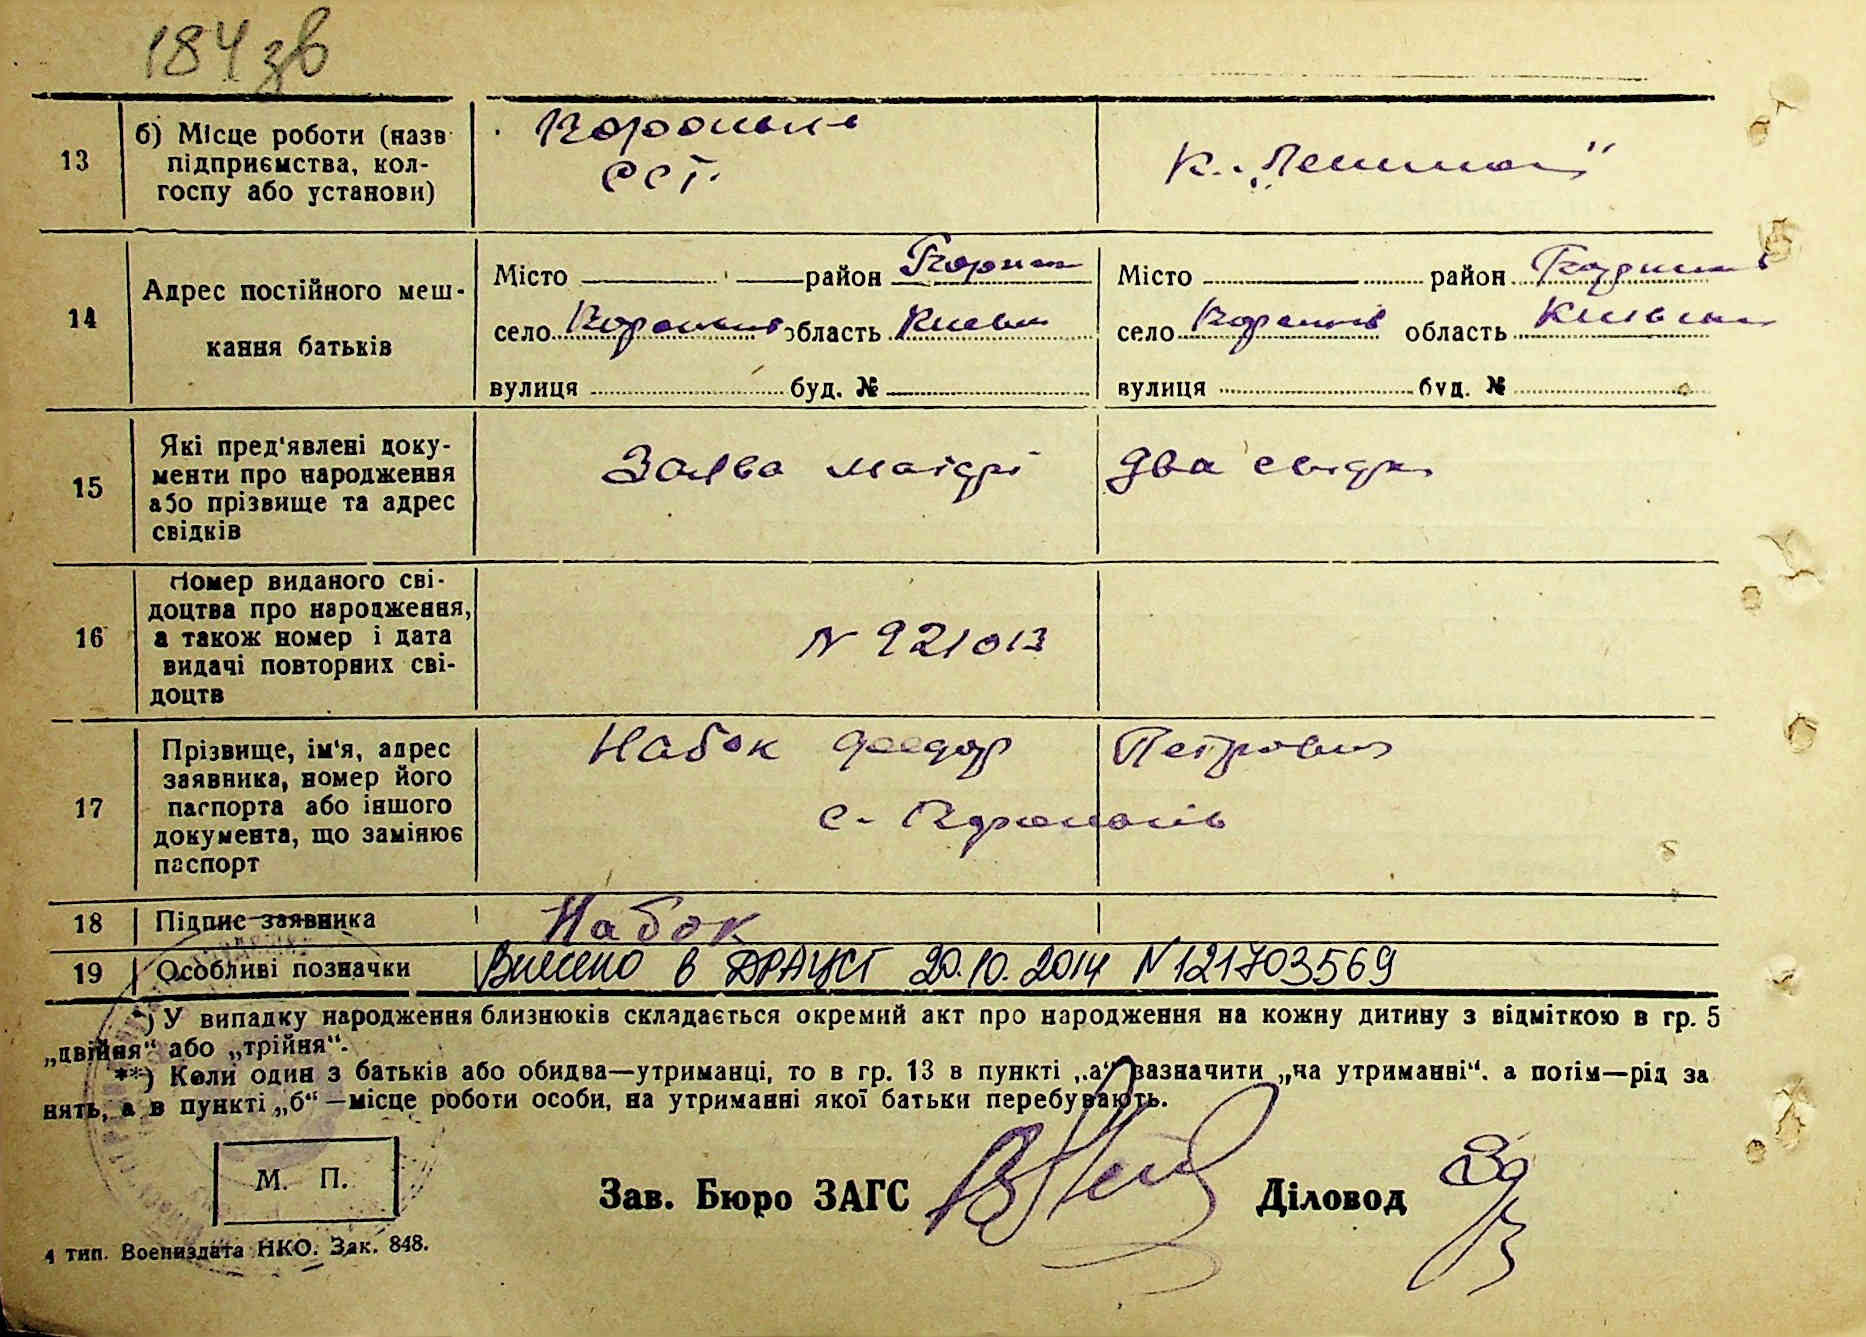 184 зв
13
б) Місце роботи (назв
підприємства, кол-
госпу або установи)
ССТ.
к. „Ленина"
14
Адрес постійного меш-
кання батьків
Місто район
село область Киевск
вулиця буд. №
Місто район
село область
вулиця буд. №
15
Які пред'явлені доку-
менти про народження
або прізвище та адрес
свідків
Заява матері два свідки
16
Номер виданого сві-
доцтва про народження,
а також номер і дата
видачі повторних сві-
доцтв
N 921013
17
Прізвище, ім'я, адрес
заявника, номер його
паспорта або іншого
документа, що замінює
паспорт
Набок Феодор Петрович
с.
18
Підпис заявника
Набок
19
Особливі позначки
Внесено в ДРАЦСГ 20.10.2014 N121703569
*) У випадку народження близнюків складається окремий акт про народження на кожну дитину з відміткою в гр. 5
„двійня" або „трійня".
**) Коли один з батьків або обидва—утриманці, то в гр. 13 в пункті „а" зазначити „на утриманні". а потім—рід за
нять, а в пункті „б"—місце роботи особи, на утриманні якої батьки перебувають.
М. П.
Зав. Бюро ЗАГС
Діловод
4 тип. Воениздата НКО. Зак. 848.